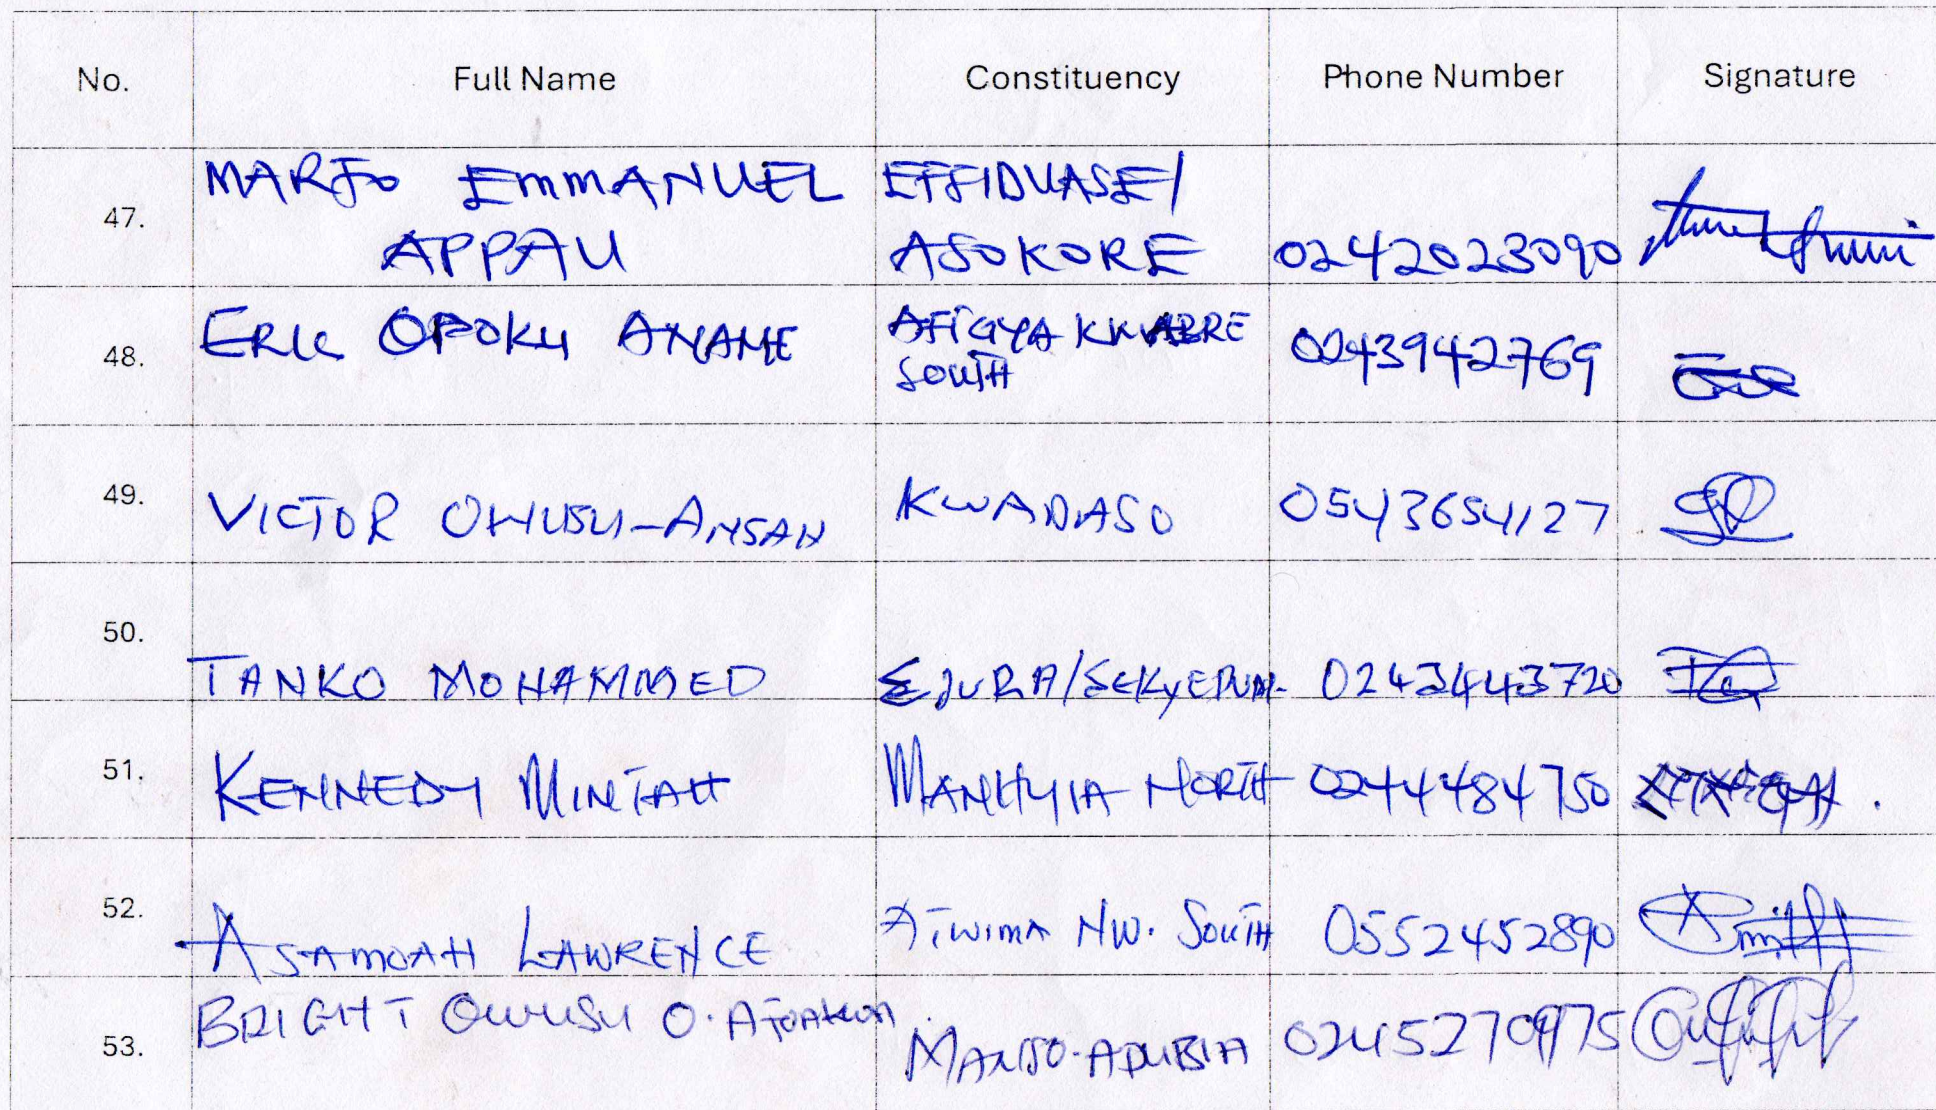 No. Full Name Constituency Phone Number Signature
MARFO EMMANUEL EFFIDUASE/
47.
APPAU ASOKORE 0242023090
48. ERIC OPOKU ANANE AFIGYA KWABRE 0243942769
SOUTH
49. VICTOR OWUSU-ANSAH KWADASO 0543654127
50.
TANKO MOHAMMED EJURA/SEKYEDUM. 0243443720
51. KENNEDY MINTAH MANHYIA NORTH 0244484750
52.
ASAMOAH LAWRENCE ATWIMA NW. SOUTH 0552452890
BRIGHT OWUSU O.
53. MANSO-ADUBIA 0245270975